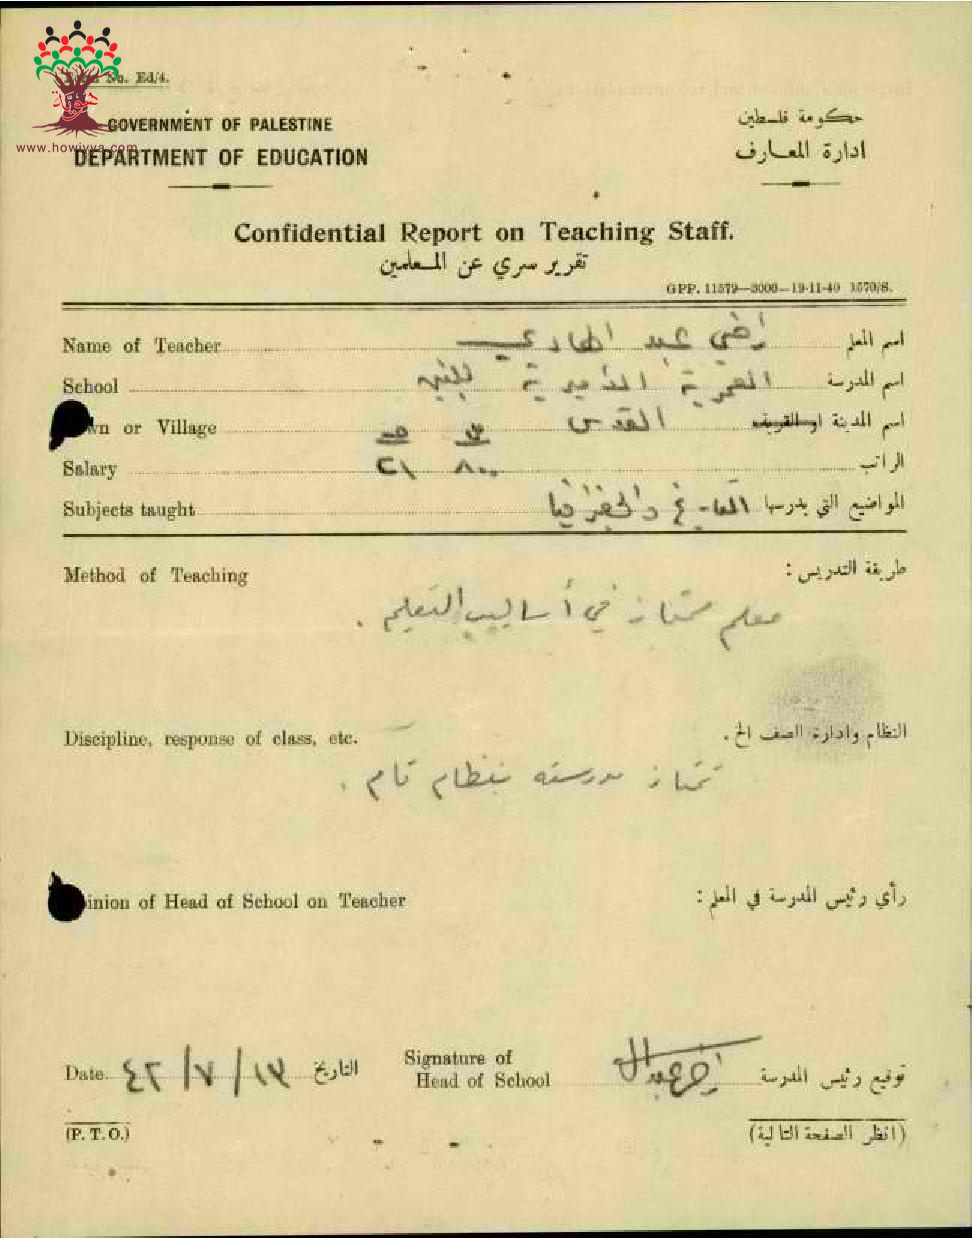 Form No. Ed/4.
هوية
www.howiyya.com
GOVERNMENT OF PALESTINE
حكومة فلسطين
DEPARTMENT OF EDUCATION
ادارة المعارف
Confidential Report on Teaching Staff.
تقرير سري عن المعلمين
GPP. 11579—3000—19-11-40 1570/S.
Name of Teacher راضي عبد الهادي اسم المعلم
School العمرية الأميرية للبنين اسم المدرسة
Town or Village القدس اسم المدينة او القرية
Salary ٢١ ٨٠٠ الراتب
Subjects taught التاريخ والجغرافيا المواضيع التي يدرسها
Method of Teaching طريقة التدريس :
معلم ممتاز في أساليب التعليم .
Discipline, response of class, etc. النظام وادارة الصف الخ .
تمتاز مدرسته بنظام تام .
Opinion of Head of School on Teacher رأي رئيس المدرسة في المعلم :
Date ١٣/٧/٤٢ التاريخ
Signature of
Head of School توقيع رئيس المدرسة
(P. T. O.) (انظر الصفحة التالية)